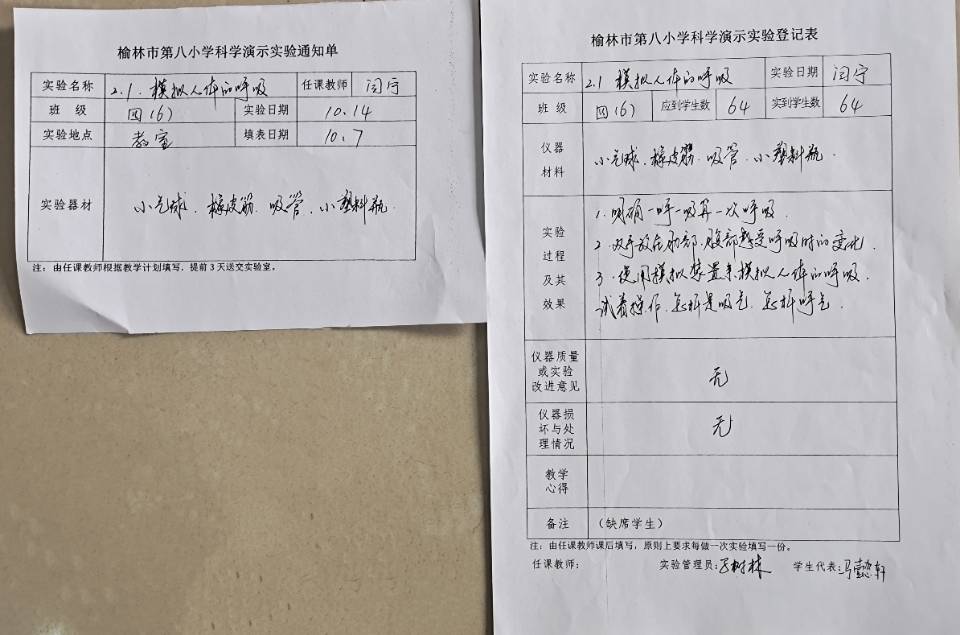 榆林市第八小学科学演示实验通知单
实验名称 2.1.模拟人体的呼吸 任课教师 闫宁
班 级 四(6) 实验日期 10.14
实验地点 教室 填表日期 10.7
实验器材 小气球、橡皮筋、吸管、小塑料瓶
注：由任课教师根据教学计划填写，提前3天送交实验室。
榆林市第八小学科学演示实验登记表
实验名称 2.1 模拟人体的呼吸 实验日期 闫宁
班 级 四(6) 应到学生数 64 实到学生数 64
仪器
材料
小气球、橡皮筋、吸管、小塑料瓶
实验
过程
及其
效果
1.明确一呼一吸算一次呼吸.
2.双手放在肋部、腹部感受呼吸时的变化.
3.使用模拟装置来模拟人体的呼吸.
试着操作.怎样是吸气.怎样呼气.
仪器质量
或实验
改进意见
无
仪器损
坏与处
理情况
无
教学
心得
备注 （缺席学生）
注：由任课教师课后填写，原则上要求每做一次实验填写一份。
任课教师： 实验管理员: 树林 学生代表: 马懿轩